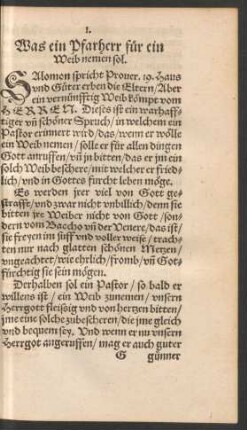 I.
Was ein Pfarherr für ein
Weib nemen sol.
SAlomon spricht Prouer. 19. Haus
vnd Güter erben die Eltern / Aber
ein vernünfftig Weib kömpt vom
HERREN. Dieses ist ein warhaff-
tiger vñ schöner Spruch / in welchem ein
Pastor erinnert wird / das / wenn er wölle
ein Weib nemen / solle er für allen dingen
Gott anruffen / vñ jn bitten / das er jm ein
solch Weib beschere / mit welcher er fried-
lich / vnd in Gottes furcht leben möge.
Es werden jrer viel von Gott ge-
strafft / vnd zwar nicht vnbillich / denn sie
bitten jre Weiber nicht von Gott / son-
dern vom Baccho vñ der Venere / das ist /
sie freyen im suff vnd voller weise / trach-
ten nur nach glatten schönen Metzen /
vngeachtet / wie ehrlich / fromb / vñ Got-
fürchtig sie sein mögen.
Derhalben sol ein Pastor / so bald er
willens ist / ein Weib zunemen / vnsern
Herrgott fleissig vnd von hertzen bitten /
jme eine solche zubescheren / die jme gleich
vnd bequem sey. Vnd wenn er nu vnsern
Herrgot angeruffen / mag er auch guter
G günner